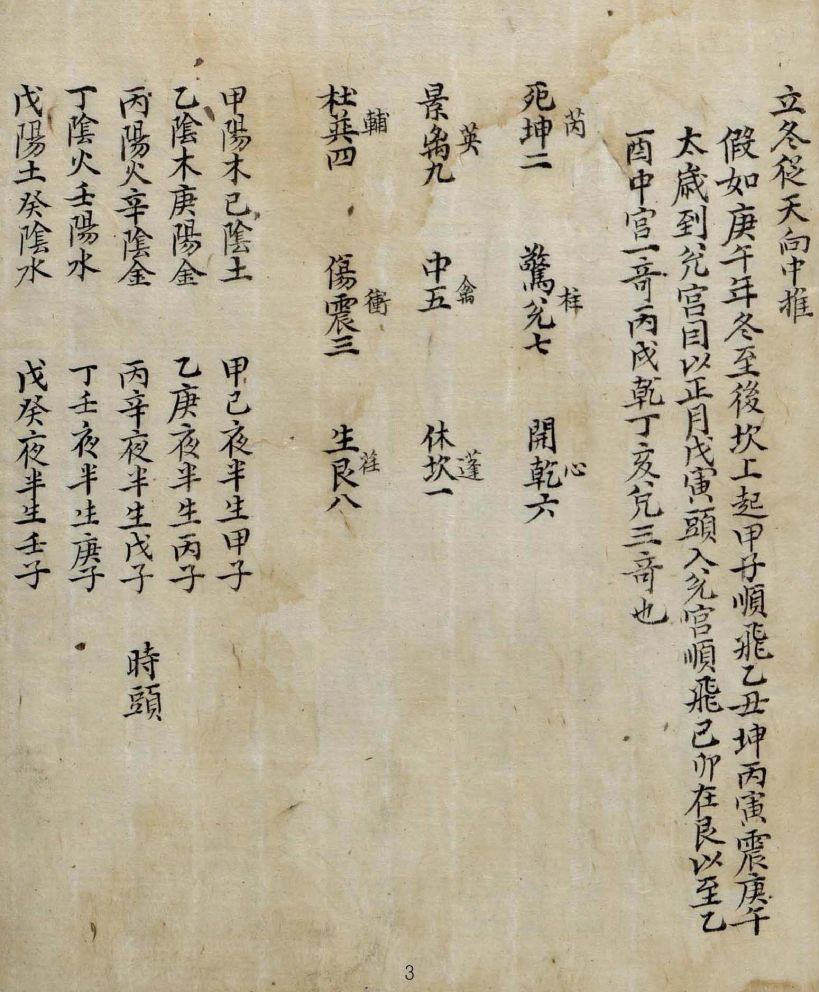 立冬從天向中推
假如庚午年冬至後坎上起甲子順飛乙丑坤丙寅震庚午
太歲到兌宮因以正月戊寅頭入兌宮順飛己卯在艮以至乙
酉中宮一奇丙戌乾丁亥兌三奇也
死坤二 芮 驚兌七 柱 開乾六 心
景离九 英 中五 禽 休坎一 蓬
杜巽四 輔 傷震三 衝 生艮八 荏
甲陽木己陰土 甲己夜半生甲子
乙陰木庚陽金 乙庚夜半生丙子
丙陽火辛陰金 丙辛夜半生戊子 時頭
丁陰火壬陽水 丁壬夜半生庚子
戊陽土癸陰水 戊癸夜半生壬子
3